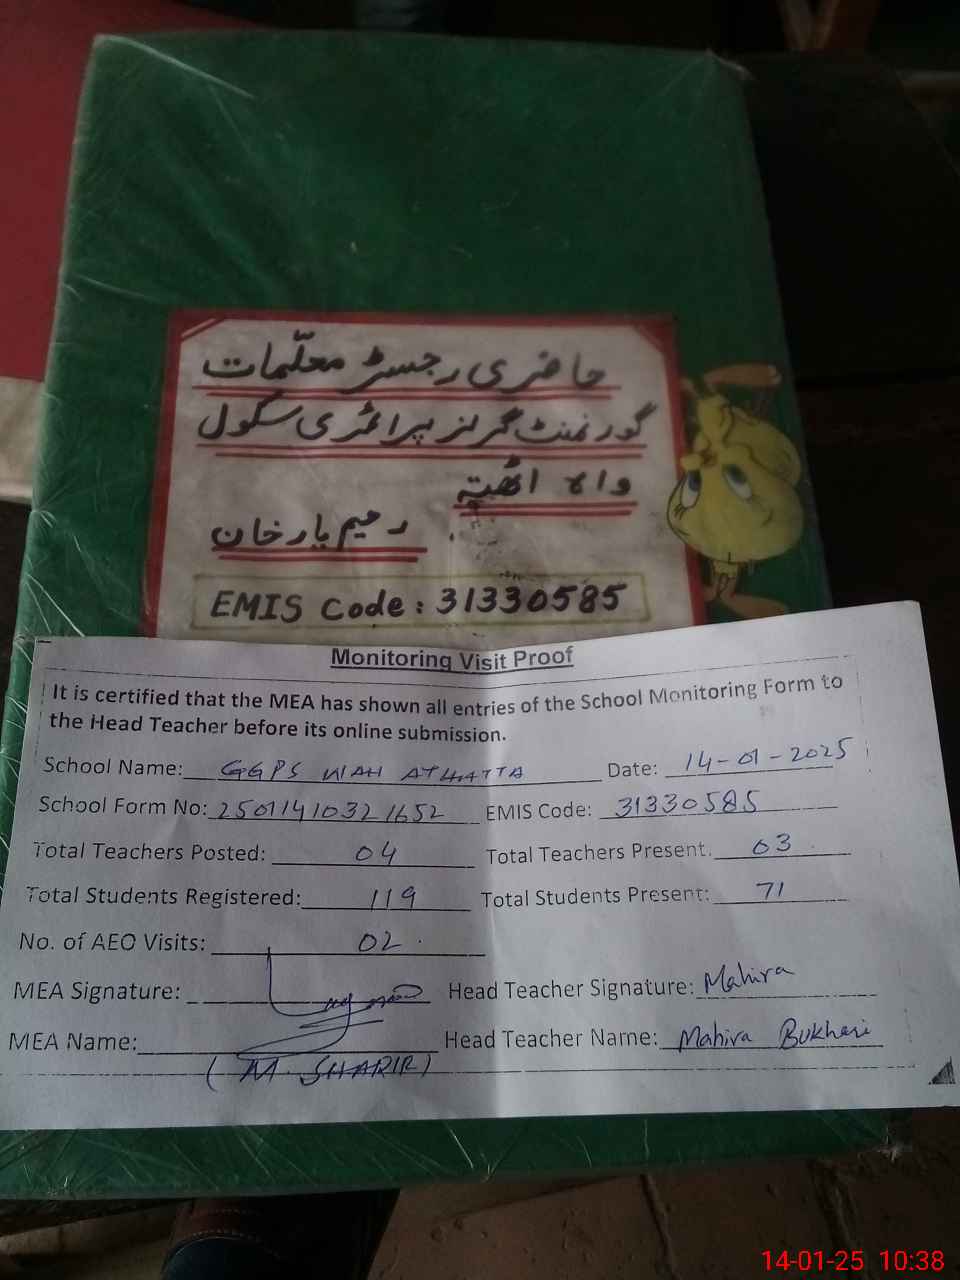 حاضری رجسٹر معلّمات
گورنمنٹ گرلز پرائمری سکول
واہ اٹھتہ
رحیم یار خان
EMIS Code: 31330585
Monitoring Visit Proof
It is certified that the MEA has shown all entries of the School Monitoring Form to
the Head Teacher before its online submission.
School Name: GGPS WAH ATHATTA Date: 14-01-2025
School Form No: 25011410321652 EMIS Code: 31330585
Total Teachers Posted: 04 Total Teachers Present: 03
Total Students Registered: 119 Total Students Present: 71
No. of AEO Visits: 02
MEA Signature: Head Teacher Signature: Mahira
MEA Name: Head Teacher Name: Mahira Bukhari
(M. SHARIR)
14-01-25 10:38